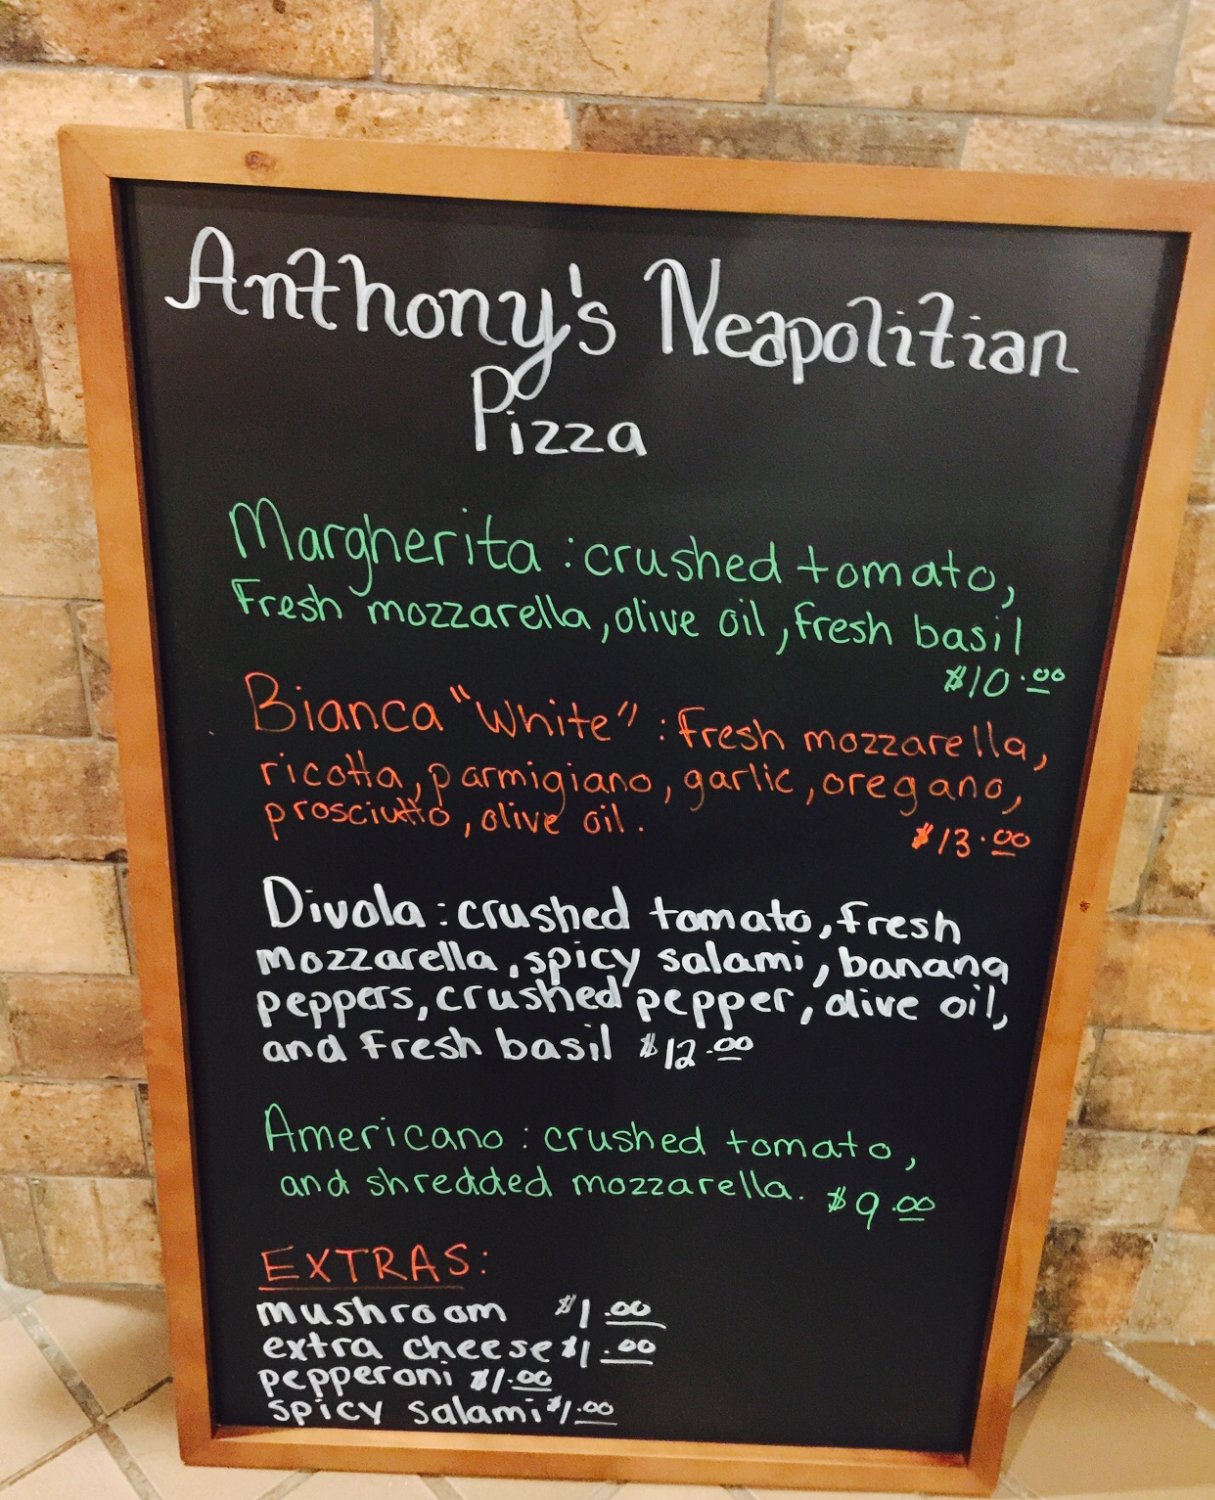 Anthony's Neapolitian
Pizza
Margherita : crushed tomato,
Fresh mozzarella, olive oil, fresh basil
$10.00
Bianca "White" : Fresh mozzarella,
ricotta, parmigiano, garlic, oregano,
prosciutto, olive oil.
$13.00
Divola : crushed tomato, fresh
mozzarella, spicy salami, banana
peppers, crushed pepper, olive oil,
and fresh basil $12.00
Americano : crushed tomato,
and shredded mozzarella. $9.00
EXTRAS:
mushroom $1.00
extra cheese $1.00
pepperoni $1.00
spicy salami $1.00